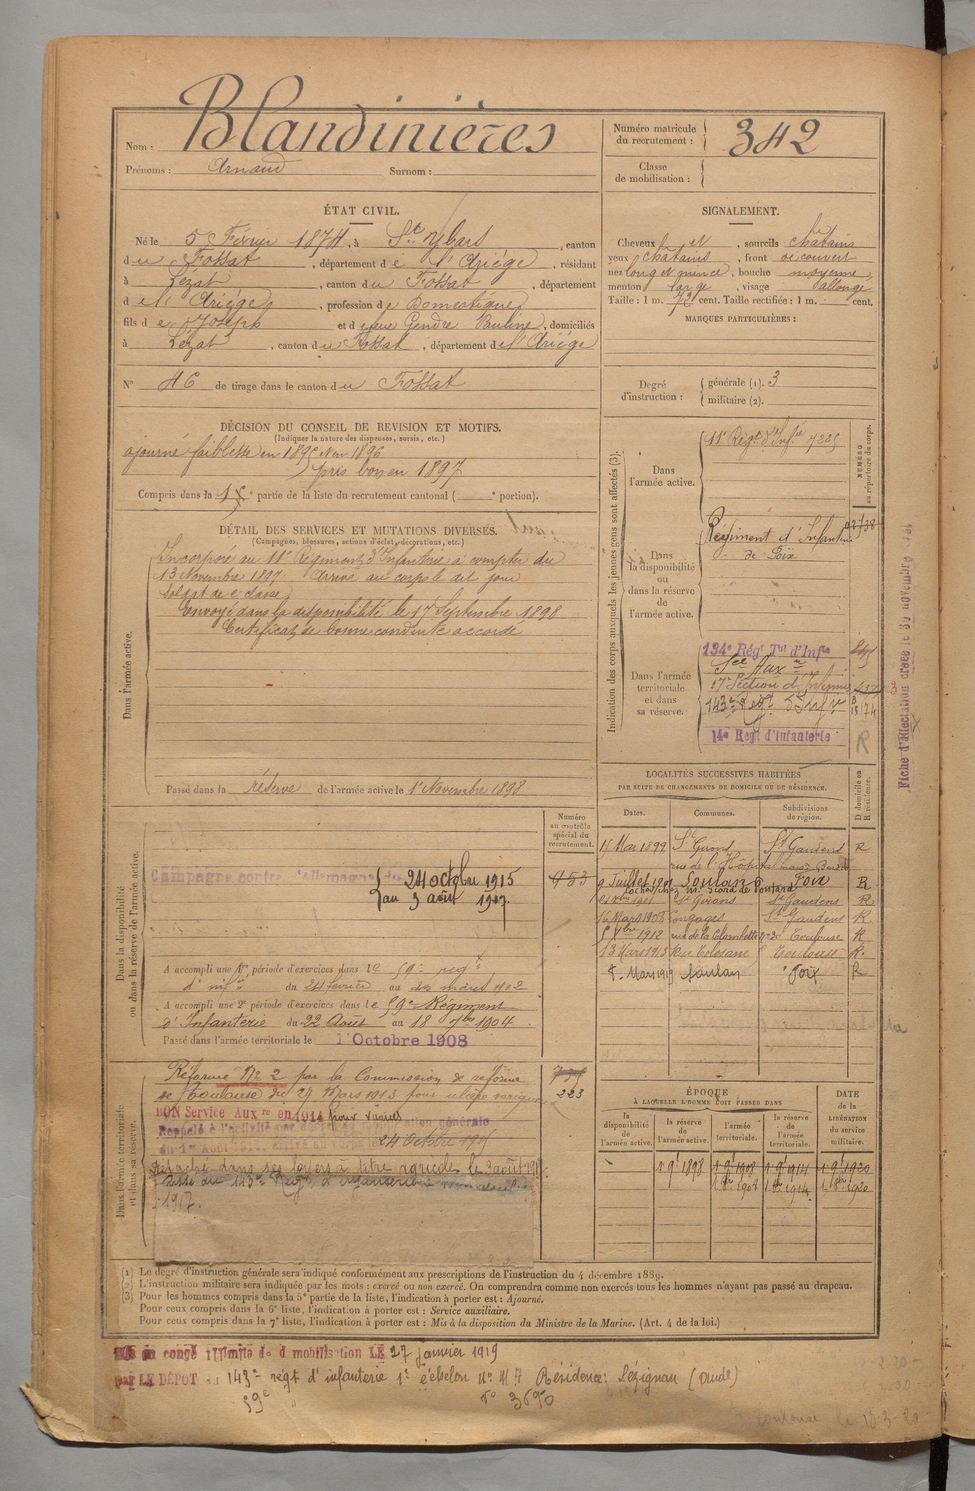 Nom : Blandinières
Prénoms : Arnaud Surnom :
Numéro matricule du recrutement : 342
Classe de mobilisation :
ÉTAT CIVIL.
Né le 5 Février 1874, à St Ybars, canton
du Fossat, département de l'Ariège, résidant
à Lézat, canton du Fossat, département
de l'Ariège, profession de Domestique
fils de Joseph et de Gendre Pauline, domiciliés
à Lézat, canton du Fossat, département de l'Ariège
N° 46 de tirage dans le canton du Fossat
SIGNALEMENT.
Cheveux et, sourcils chatains
yeux chatains, front découvert
nez long et mince, bouche moyenne,
menton large, visage allongé
Taille : 1 m. 72 cent. Taille rectifiée : 1 m. cent.
MARQUES PARTICULIÈRES :
Degré d'instruction : générale (1). 3
militaire (2).
DÉCISION DU CONSEIL DE REVISION ET MOTIFS.
(Indiquer la nature des dispenses, sursis, etc.)
ajourné faiblesse en 1895 1896
pris bon en 1897
Compris dans la 1e partie de la liste du recrutement cantonal ( e portion).
DÉTAIL DES SERVICES ET MUTATIONS DIVERSES.
(Campagnes, blessures, actions d'éclat, décorations, etc.)
Dans l'armée active.
Incorporé au 11e Régiment d'Infanterie à compter du
13 Novembre 1897. Arrivé au corps le dit jour
Soldat de 2e classe
Envoyé dans la disponibilité le 17 Septembre 1898
Certificat de bonne conduite accordé
Passé dans la réserve de l'armée active le 1er Novembre 1898
Indication des corps auxquels les jeunes gens sont affectés (3).
NUMÉRO au répertoire du corps.
Dans l'armée active.
11e Régt d'Infie
Dans la disponibilité ou dans la réserve de l'armée active.
Régiment d'Infanterie
de Foix
Dans l'armée territoriale et dans sa réserve.
134e Régt Tal d'Infie
Sce Auxre
17e Section d'Infirmiers
143e Régt d'Infie
14e Régt d'Infanterie
R
Fiche d'affectation créée le 30 novembre
LOCALITÉS SUCCESSIVES HABITÉES
PAR SUITE DE CHANGEMENTS DE DOMICILE OU DE RÉSIDENCE.
Dates. Communes. Subdivisions de région. D domicile ou R résidence.
15 Mai 1899 St Girons St Gaudens R
rue de l'Hôpital
9 Juillet 1901 Soulan Foix R
1901 St Girons St Gaudens R
16 Mars 1908 St Gaudens R
1912 rue de la Colombette Toulouse R
13 Mars 1913 Rue Tolosane Toulouse R
Mars 1919 Soulan Foix R
Dans la disponibilité ou dans la réserve de l'armée active.
Numéro au contrôle spécial du recrutement.
Campagne contre l'Allemagne du
24 octobre 1915
au 3 août 1917.
A accompli une 1re période d'exercices dans le 59e régt
d'infie du 24 février au 23 mars 1902
A accompli une 2e période d'exercices dans le 59e Régiment
d'Infanterie du 22 Août au 18 7bre 1904
Passé dans l'armée territoriale le 1 Octobre 1908
Dans l'armée territoriale et dans sa réserve.
Réformé N° 2 par la Commission de réforme
de Toulouse du 29 Mars 1913 pour ulcère variqueux
223
BON Service Auxre en 1914
Rappelé à l'activité par mobilisation générale
24 Octobre
Détaché dans ses foyers à titre agricole le 3 août 1917
Passé au 143e Régt d'infanterie
1917.
ÉPOQUE
À LAQUELLE L'HOMME DOIT PASSER DANS
la disponibilité de l'armée active. la réserve de l'armée active. l'armée territoriale. la réserve de l'armée territoriale.
DATE de la LIBÉRATION du service militaire.
1 9bre 1898 1 9bre 1908 1 9bre 1914 1 9bre 1920
1908 1914 1920
(1) Le degré d'instruction générale sera indiqué conformément aux prescriptions de l'instruction du 4 décembre 1889.
(2) L'instruction militaire sera indiquée par les mots : exercé ou non exercé. On comprendra comme non exercés tous les hommes n'ayant pas passé au drapeau.
(3) Pour les hommes compris dans la 5e partie de la liste, l'indication à porter est : Ajourné.
Pour ceux compris dans la 6e liste, l'indication à porter est : Service auxiliaire.
Pour ceux compris dans la 7e liste, l'indication à porter est : Mis à la disposition du Ministre de la Marine. (Art. 4 de la loi.)
en congé illimité de démobilisation LE 27 janvier 1919
par LE DÉPOT du 143e régt d'infanterie 1er échelon Résidence : Lézignan (Aude)
59e N° 3690